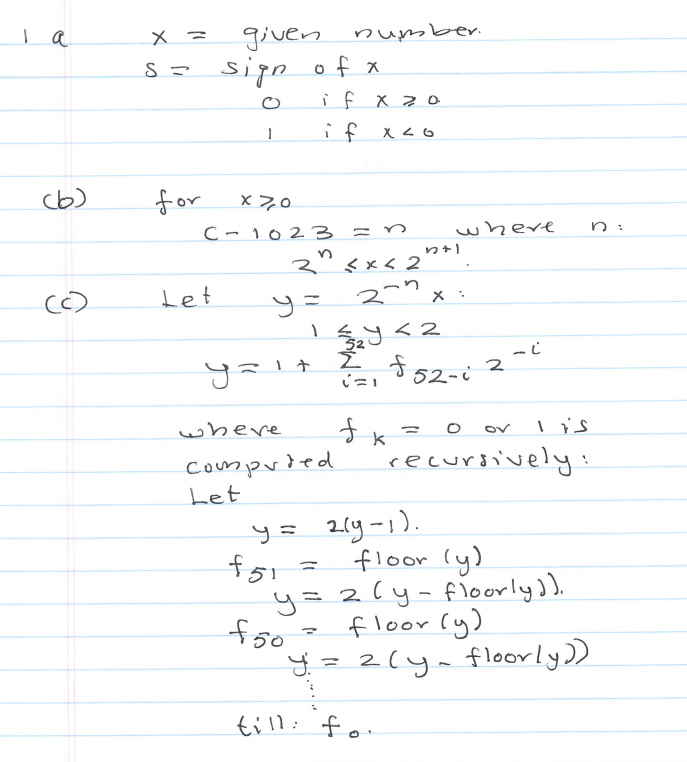 1 a x = given number.
s = sign of x
0 if x ≥ 0
1 if x < 0
(b) for x ≥ 0
c - 1023 = n where n:
2^n ≤ x < 2^{n+1}.
(c) Let y = 2^{-n} x :
1 ≤ y < 2
y = 1 + \sum_{i=1}^{52} f_{52-i} 2^{-i}
where f_k = 0 or 1 is
computed recursively:
Let
y = 2(y-1).
f_{51} = floor (y)
y = 2 (y - floor(y)).
f_{50} = floor (y)
y = 2 (y - floor(y))
till: f_0.